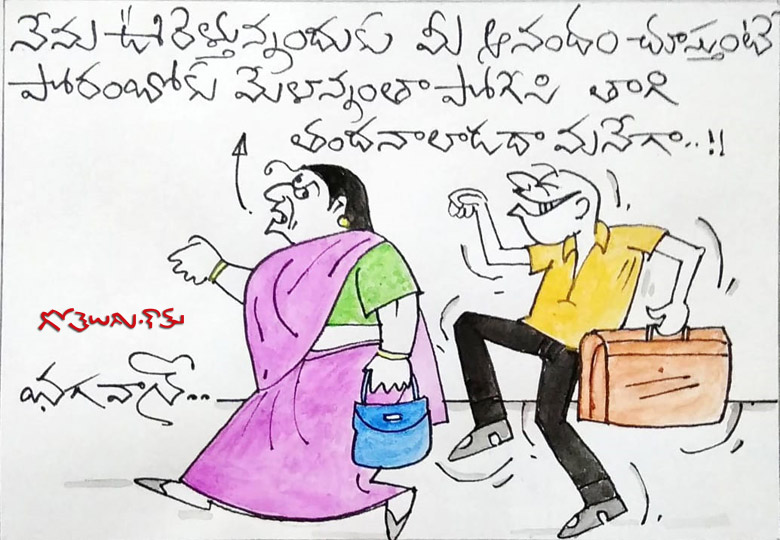 నేను ఊరెళ్తున్నందుకు మీ ఆనందం చూస్తుంటే
పోరంబోకు మేళాన్నంతా పోగేసి తాగి
తందనాలాడుదామనేగా..!!
గోతెలుగు.కామ్
భగవాన్..